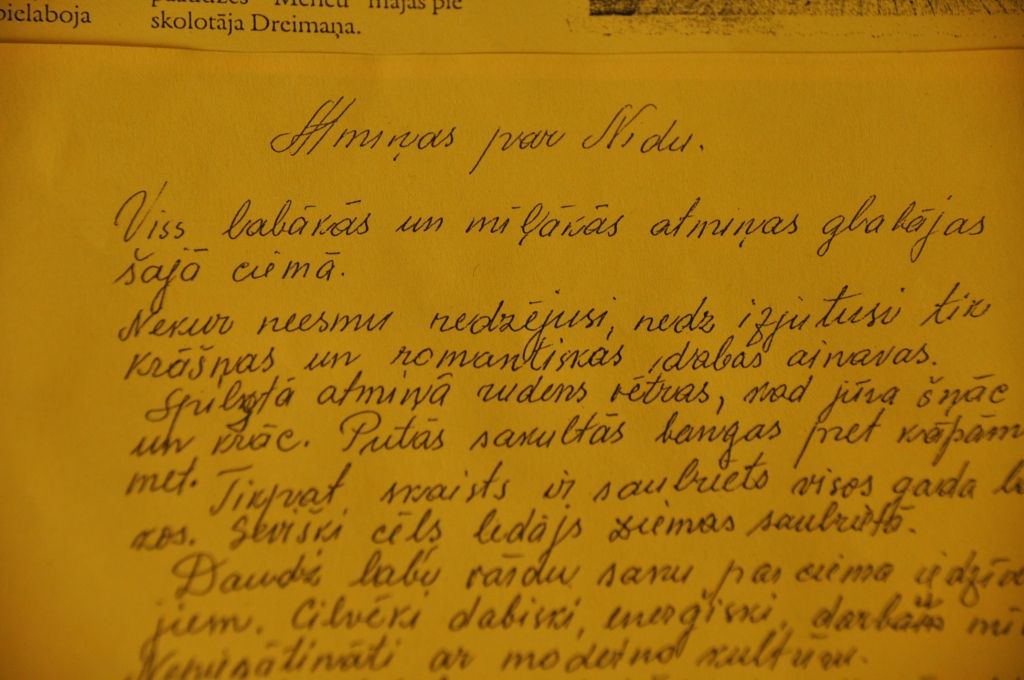 pielaboja
"Meneti" mājas pie
skolotāja Dreimaņa.
Atmiņas par Nidu.
Viss labākās un mīļākās atmiņas glabājas
šajā ciemā.
Nekur neesmu redzējusi, nedz izjutusi tik
krāšņas un romantiskas dabas ainavas.
Spilgtā atmiņā rudens vētras, kad jūra šņāc
un krāc. Putās sakultās bangas pret kāpām
met. Tikpat skaists ir saulriets visos gada la
kos. Sevišķi cēls ledājs ziemas saulrietā.
Daudz labu vārdu saku par ciema iedzīvo
jiem. Cilvēki dabiski, enerģiski, darbā mī
ar moderno kultūru.